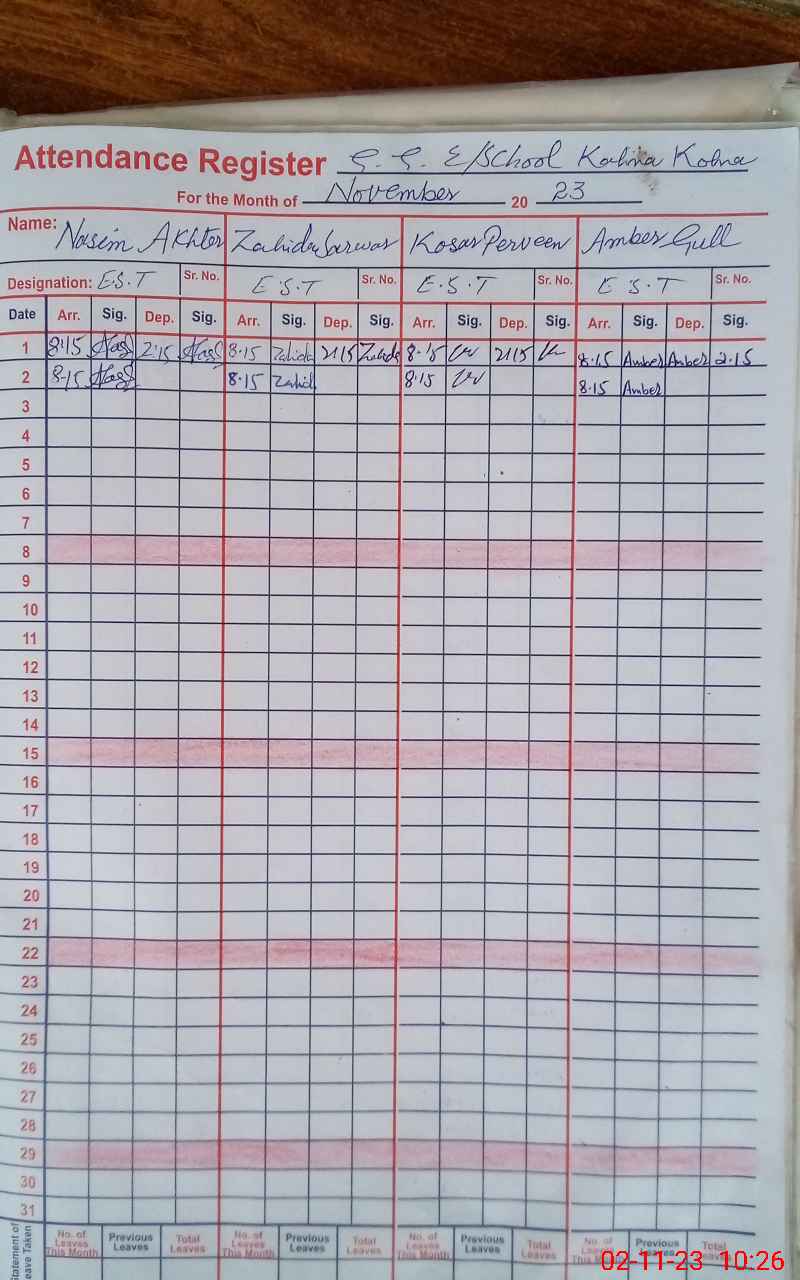 Attendance Register G. G. E/School Kahna Kohna
For the Month of November 20 23
Name: Nasim Akhter Zahida Sarwar Kosar Perveen Amber Gull
Designation: E.S.T Sr. No. E.S.T Sr. No. E.S.T Sr. No. E S T Sr. No.
Date Arr. Sig. Dep. Sig. Arr. Sig. Dep. Sig. Arr. Sig. Dep. Sig. Arr. Sig. Dep. Sig.
1 8:15 2:15 8.15 Zahida 2115 Zahida 8.15 2115 8:15 Amber Amber 2.15
2 8.15 8.15 Zahid 8.15 8.15 Amber
3
4
5
6
7
8
9
10
11
12
13
14
15
16
17
18
19
20
21
22
23
24
25
26
27
28
29
30
31
Statement of Leave Taken No. of Leaves This Month Previous Leaves Total Leaves No. of Leaves This Month Previous Leaves Total Leaves No. of Leaves This Month Previous Leaves Total Leaves No. of Leaves Previous Leaves Total
02-11-23 10:26